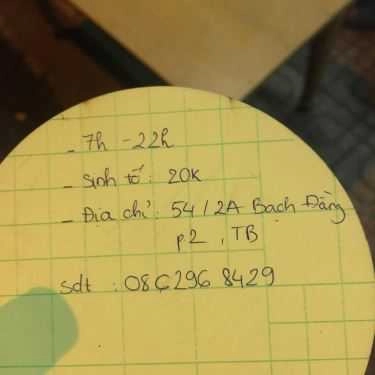 - 7h - 22h
- Sinh tố : 20k
- Địa chỉ : 54 / 2A Bạch Đằng
p2 , TB
Sdt :